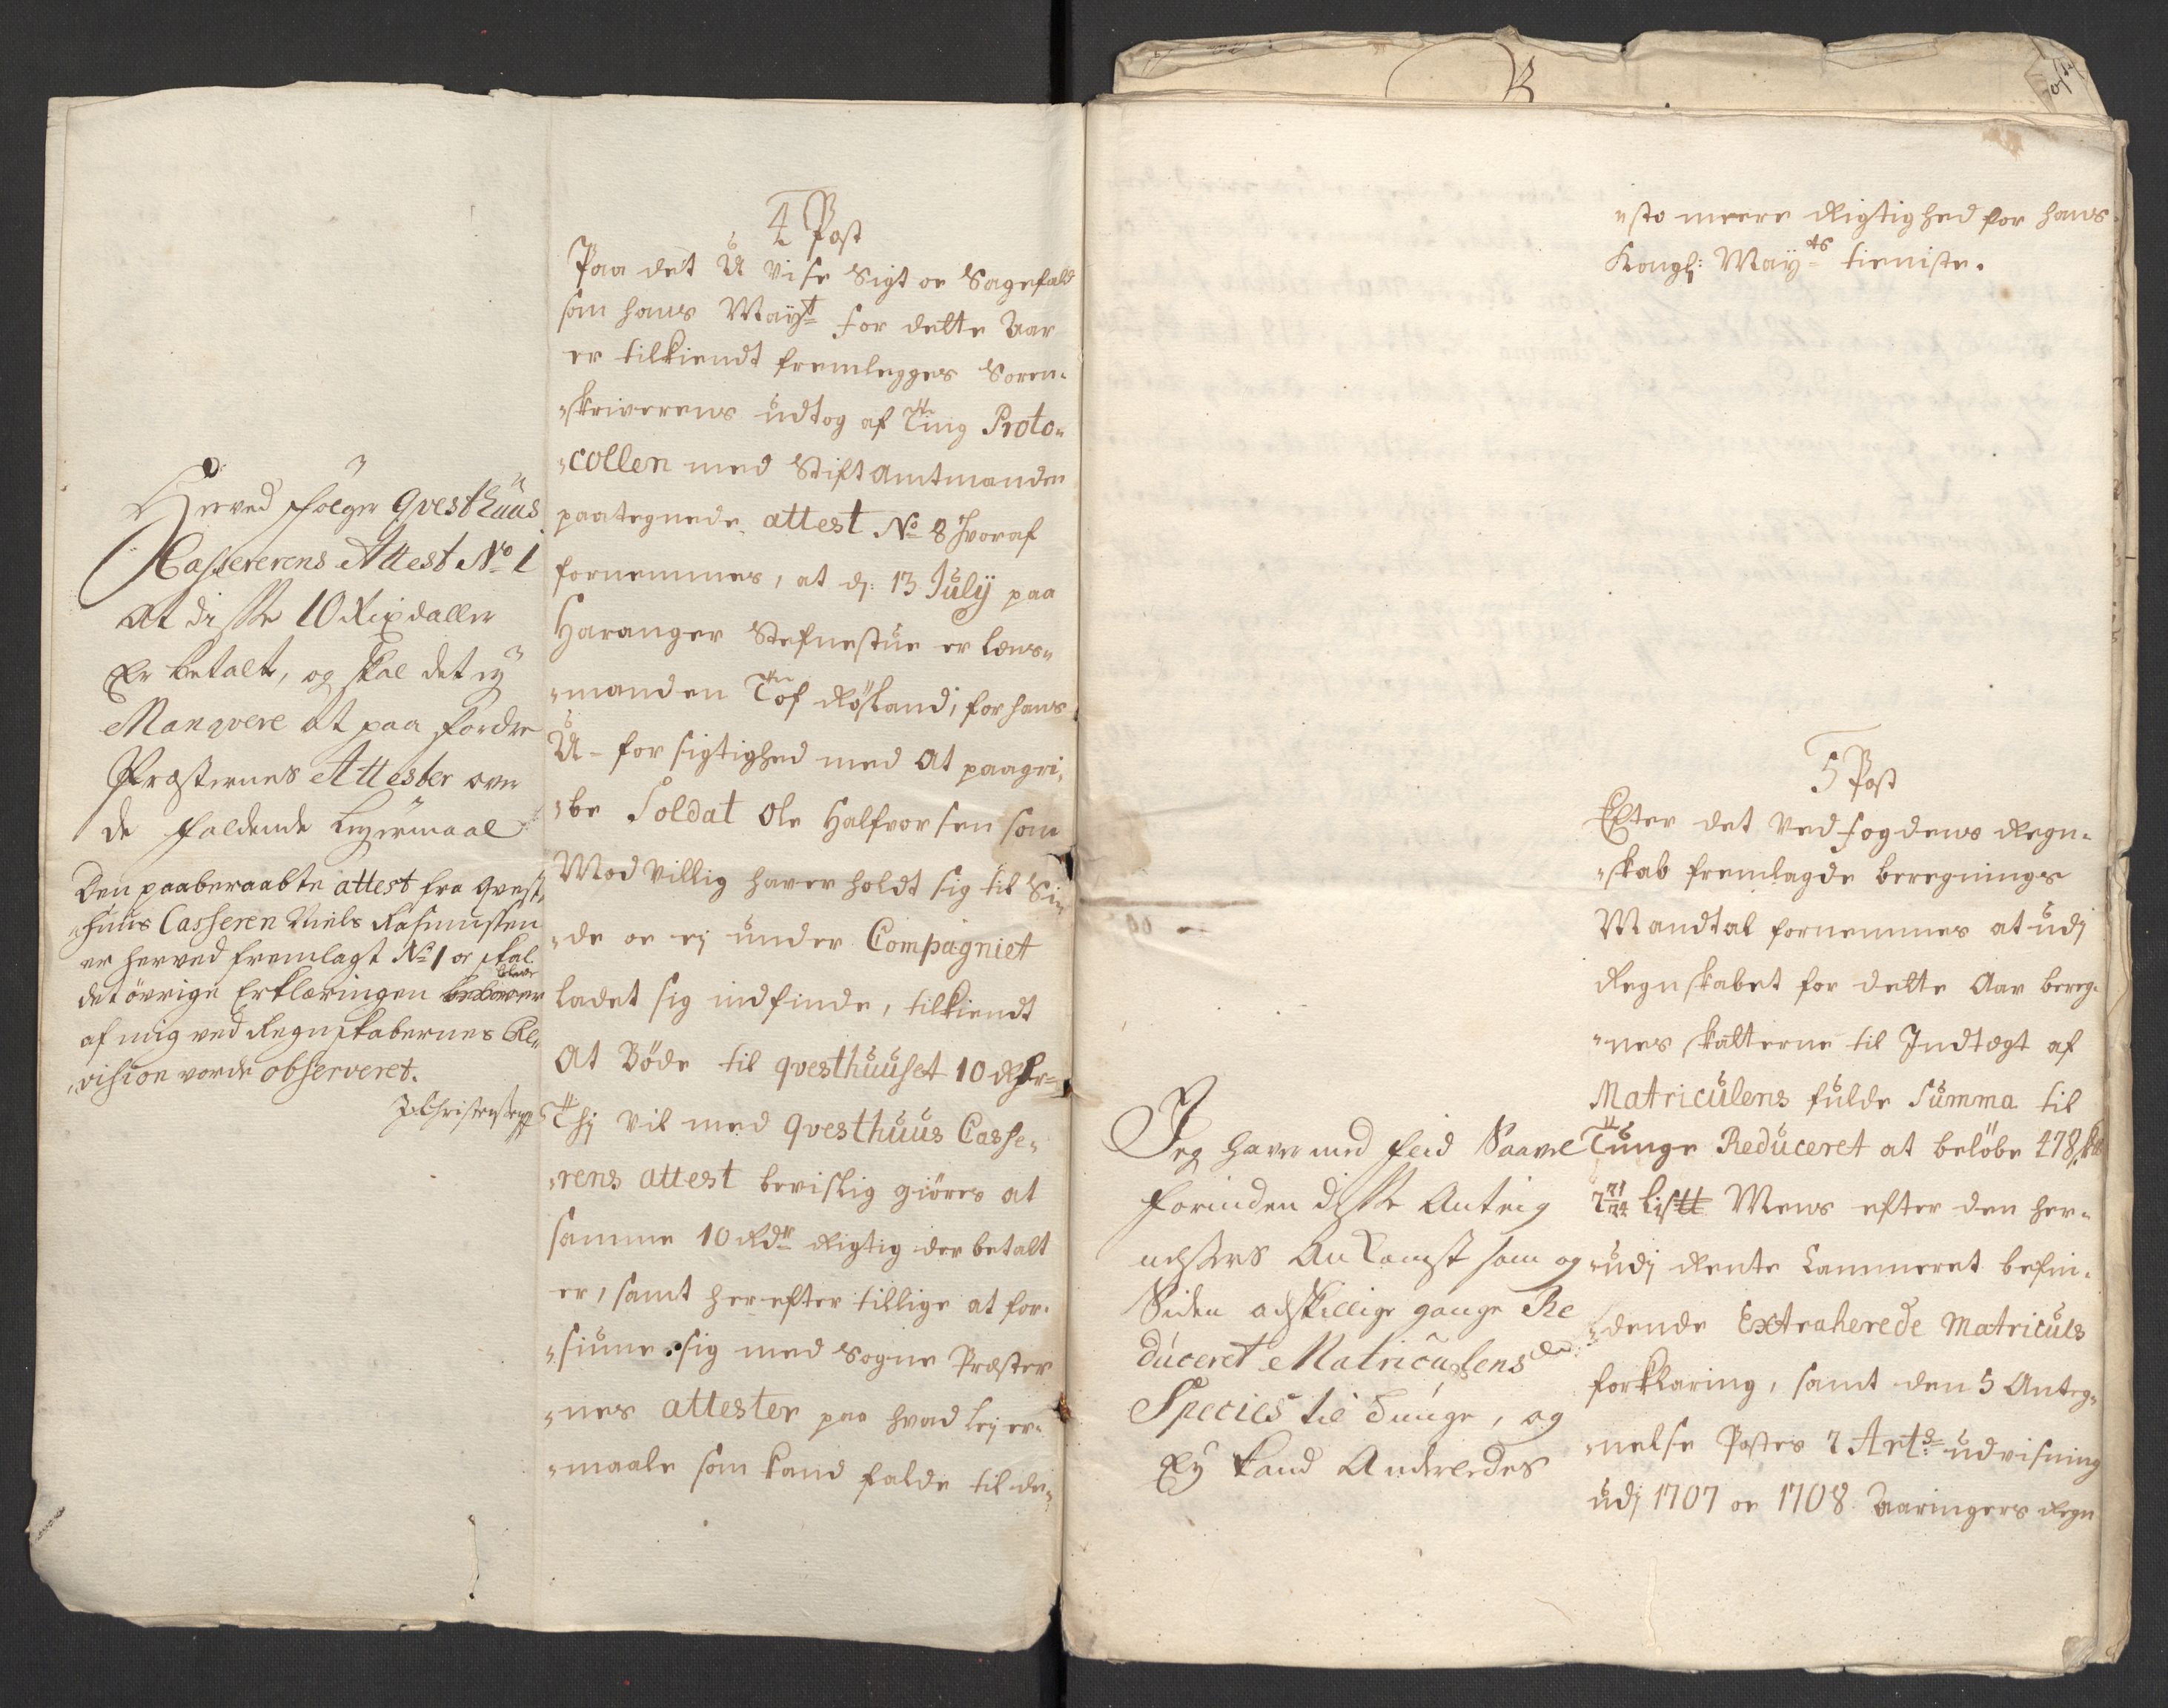 4 Post
Paa det U vise Sigt oc Sagefald
som hans Mayt for dette Aar
er tilkiendt fremlegges Soren-
skriverens udtog af Ting Proto-
collen med Stiftamtmanden
paategnede attest No 8 hvoraf
fornemmes, at d: 13 Julij paa
Haranger Stefnestue er Lens-
manden Tof Røsland, for hans
U-forsigtighed med at paagri-
be Soldat Ole Halfvorsen som
Modvillig haver holdt sig til Si-
de oc ej under Compagniet
ladet sig indfinde, tilkiendt
at Bøde til qvesthuuset 10 Rdr
Thj vil med qvesthuus Casse-
rens attest bevislig giøres at
samme 10 Rdr Rigtig der betalt
er, samt herefter tillige at for-
siune sig med Sogne Præster
nes attester paa hvad leyer-
maale som kand falde til de-
Herved følger qvesthuus
Cassererens Attest No 1
at disse 10 Rixdaller
Er betalt, og skal det ey
Manqvere at paa fordre
Præsternes Attester over
de faldende Leyermaal
Den paaberaabte attest fra qvest-
huus Casseren Niels Rasmussen
er herved fremlagt No 1 oc skal
det øvrige Erklæringen blive
af mig ved Regnskabernes Re-
vision vorde observeret.
JChristensen
sto meere Rigtighed for hans
Kongl: Mayts tieniste.
5 Post
Efter det ved fogdens Regn-
skab fremlagde beregnings
Mandtal fornemmes at udj
Regnskabet for dette Aar bereg-
nes skatterne til Indtegt af
Matriculens fulde Summa til
Tunge Reduceret at beløbe 478
7 71/24 Mens efter den her-
udj Rente Cammeret befin-
dende Extraherede Matriculs
forklaring, samt den 5 Anteg-
nelse Postes 7 Arts udvisning
udj 1707 oc 1708 Aaringers Regn
Jeg haver med fliid Saavel
forinden disse Anteig
nelsers Ankomst som og
Siden adskillige gange Re
duceret Matriculens
Species til Tunge, og
Ey kand Anderledes